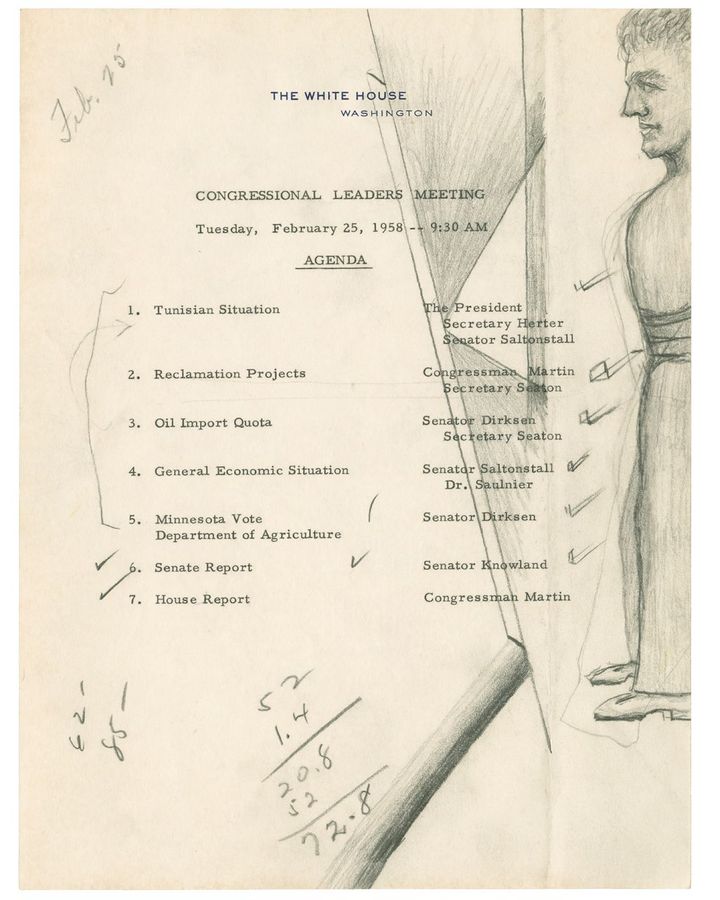 Feb. 25
THE WHITE HOUSE
WASHINGTON
CONGRESSIONAL LEADERS MEETING
Tuesday, February 25, 1958 -- 9:30 AM
AGENDA
1. Tunisian Situation The President
Secretary Herter
Senator Saltonstall
2. Reclamation Projects Congressman Martin
Secretary Seaton
3. Oil Import Quota Senator Dirksen
Secretary Seaton
4. General Economic Situation Senator Saltonstall
Dr. Saulnier
5. Minnesota Vote Senator Dirksen
Department of Agriculture
6. Senate Report Senator Knowland
7. House Report Congressman Martin
52
1.4
20.8
52
72.8